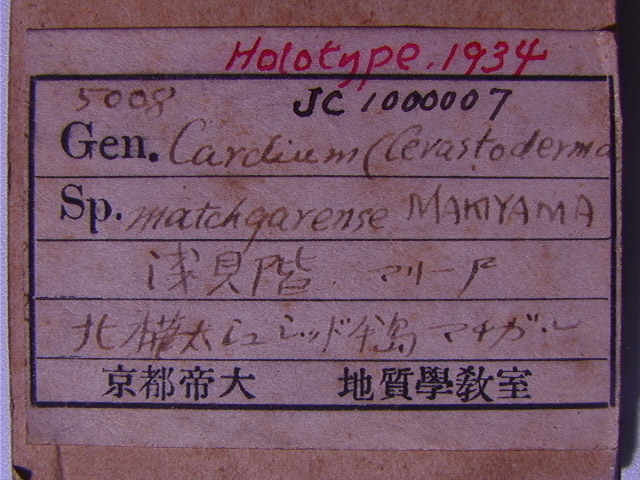 Holotype. 1934
5008 JC 1000007
Gen. Cardium (Cerastoderma
Sp. matchgarense MAKIYAMA
浅見階 マリード
北樺太シュミッド半島 マチガル
京都帝大 地質學敎室